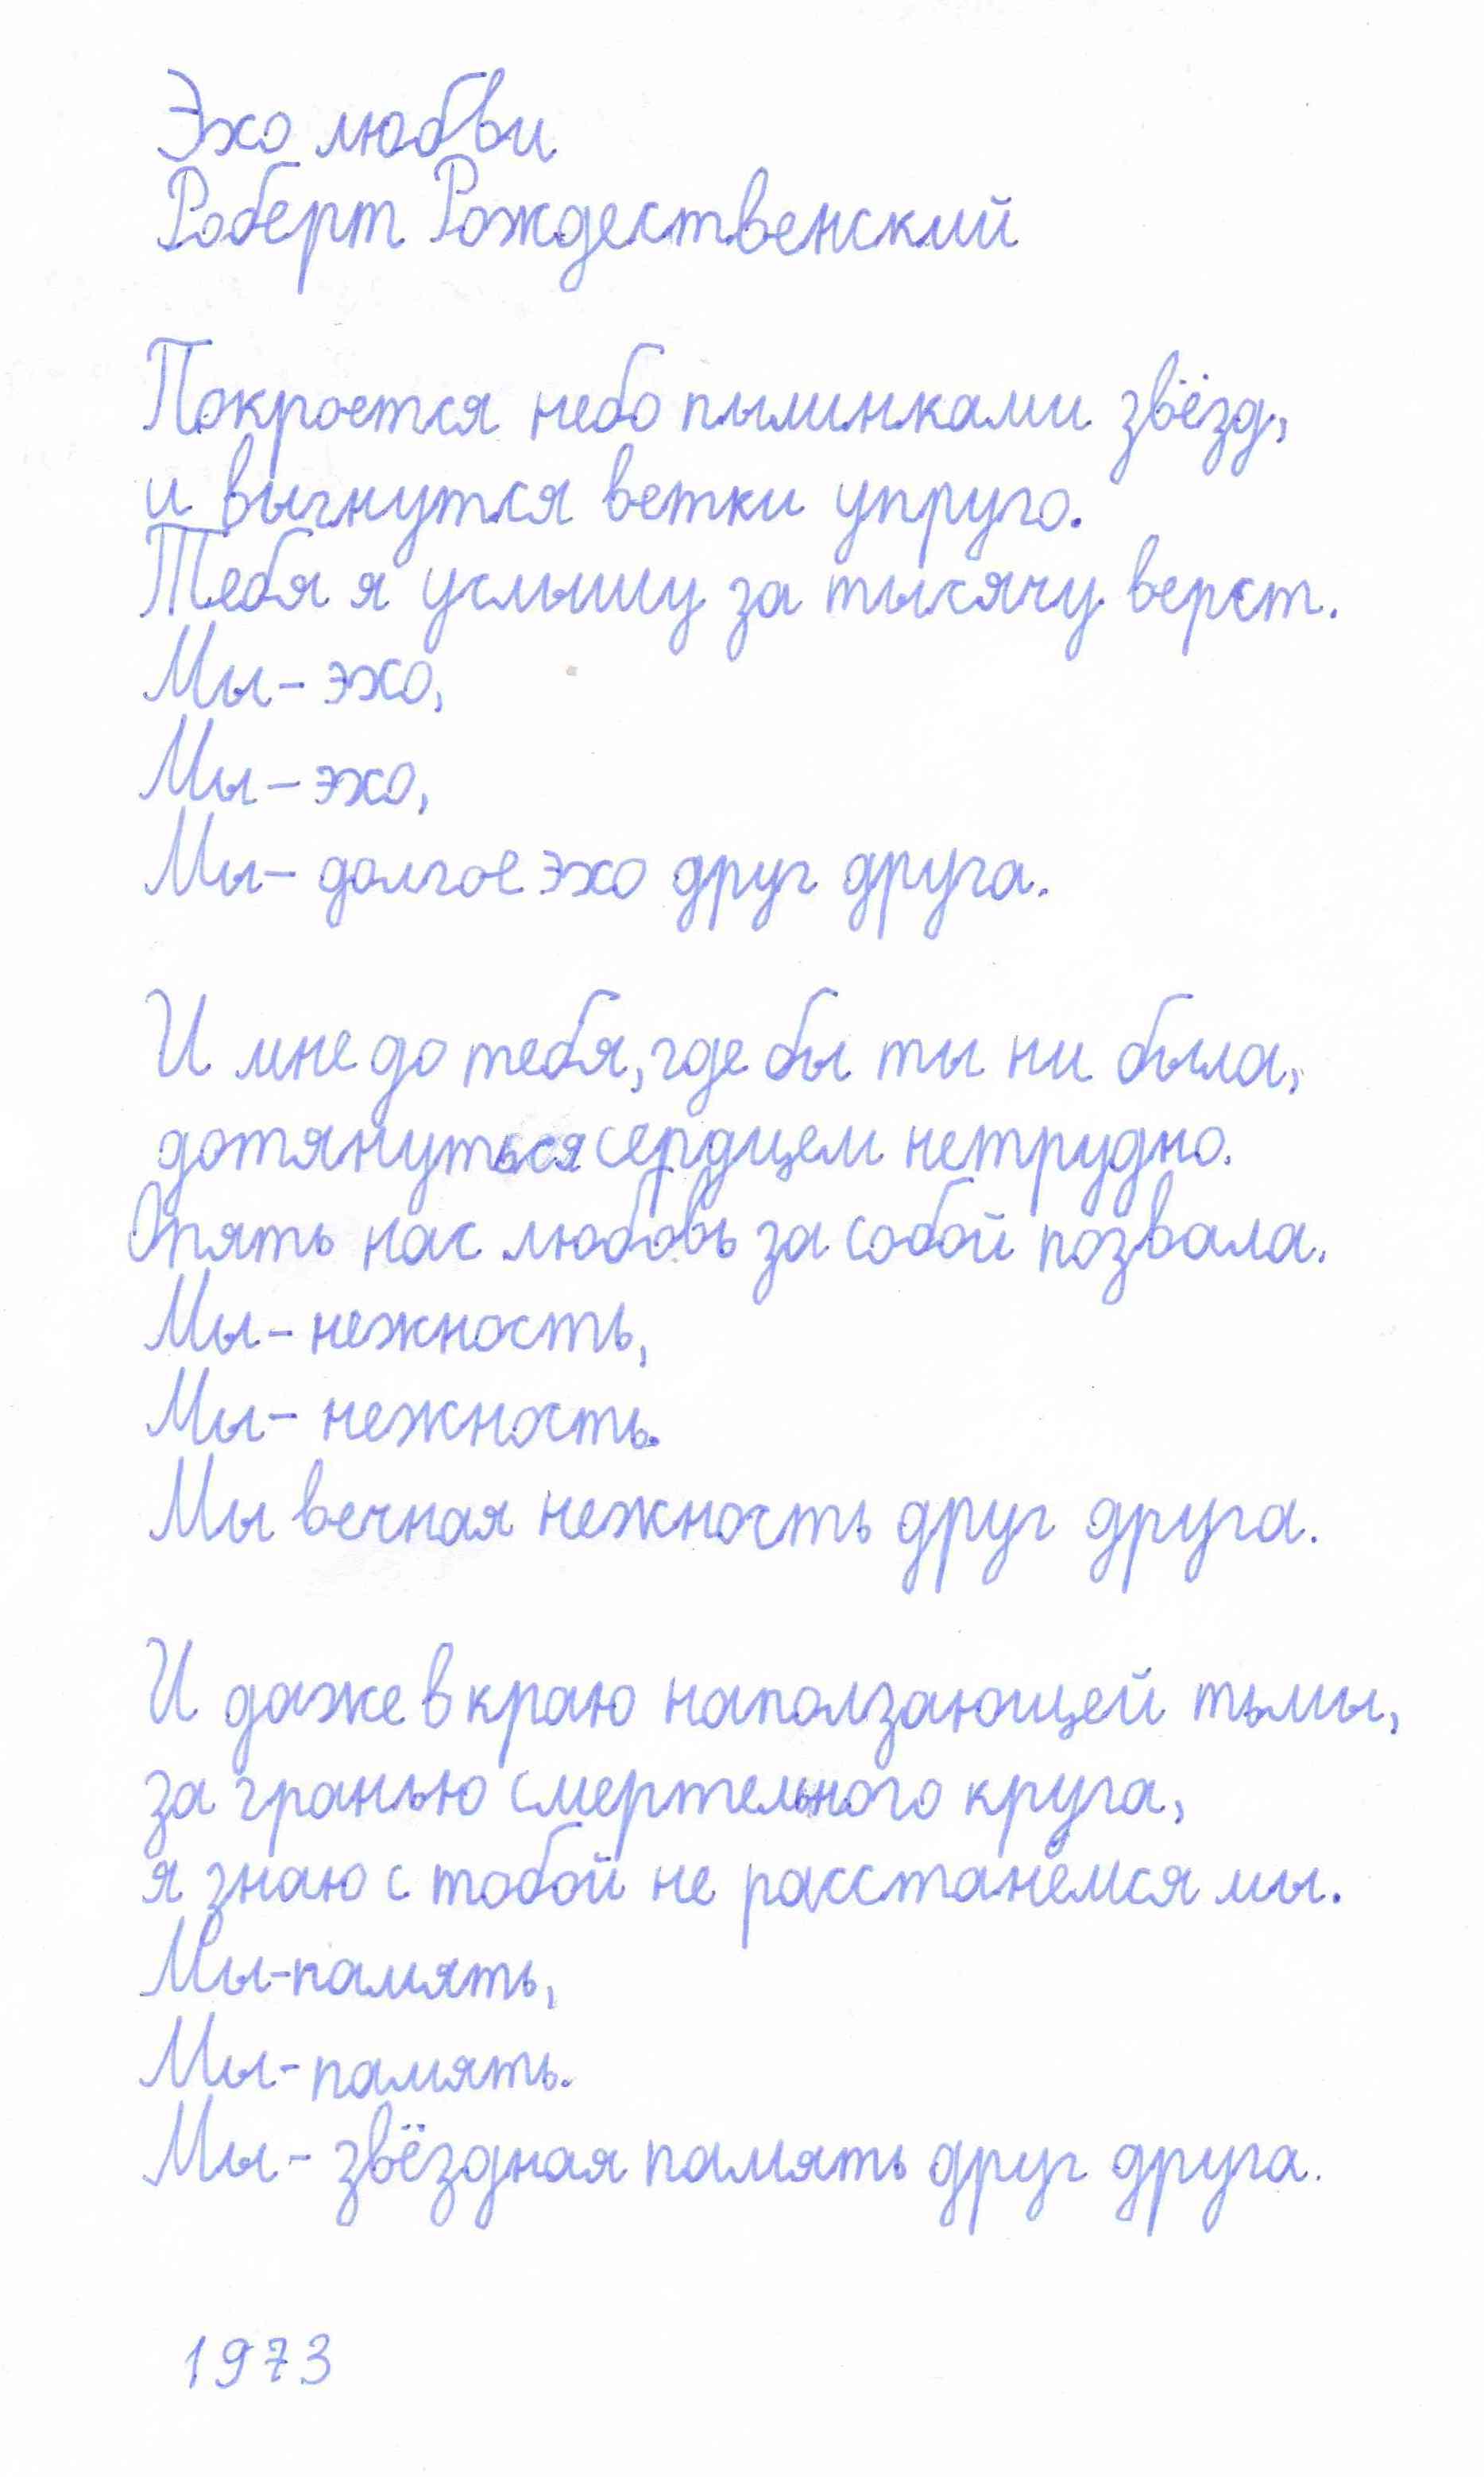 Эхо любви
Роберт Рождественский
Покроется небо пылинками звёзд,
и выгнутся ветки упруго.
Тебя я услышу за тысячу верст.
Мы - эхо,
Мы - эхо,
Мы - долгое эхо друг друга.
И мне до тебя, где бы ты ни была,
дотянуться сердцем нетрудно.
Опять нас любовь за собой позвала.
Мы - нежность,
Мы - нежность.
Мы вечная нежность друг друга.
И даже в краю наползающей тьмы,
за гранью смертельного круга,
я знаю с тобой не расстанемся мы.
Мы - память,
Мы - память.
Мы - звёздная память друг друга.
1973